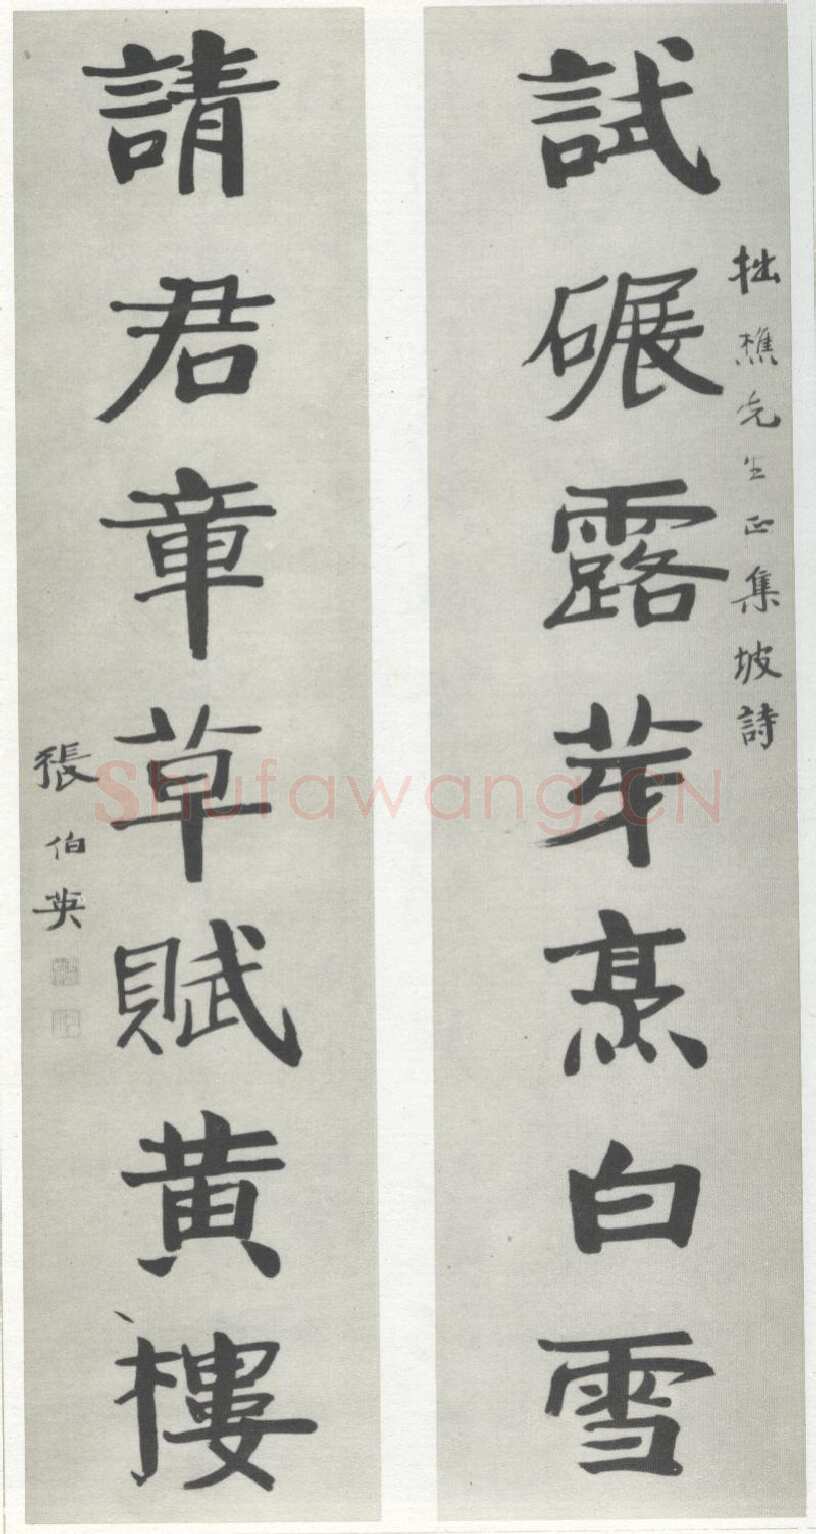 拙樵先生正集坡詩
試碾露芽烹白雪
請君章草賦黃樓
張伯英
Shufawang.CN